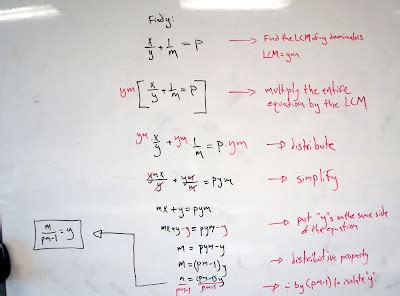 Find y:
x/y + 1/m = P → Find the LCM of my dominators
LCM = ym
ym [x/y + 1/m = P] → multiply the entire
equation by the LCM
ym · x/y + ym · 1/m = P · ym → distribute
ymx/y + ym/m = pym → simplify
mx + y = pym
mx + y - y = pym - y → put "y"s on the same side
of the equation
m = pym - y
m = (pm-1)y → distributive property
m/pm-1 = (pm-1)y/pm-1 → ÷ by (pm-1) to isolate "y"
m/pm-1 = y